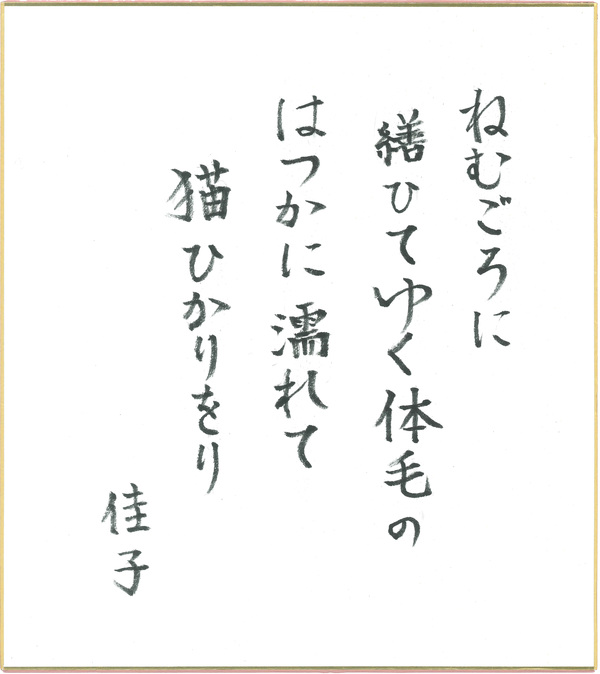 ねむごろに
繕ひてゆく体毛の
はつかに濡れて
猫ひかりをり
佳子